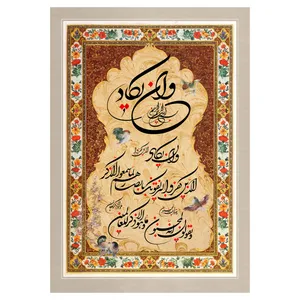 وان یکاد
بسم الله الرحمن الرحیم
وان یکاد
الذین کفروا لیزلقونک بابصارهم لما سمعوا الذکر
و یقولون انه لمجنون
و ما هو الا ذکر للعالمین